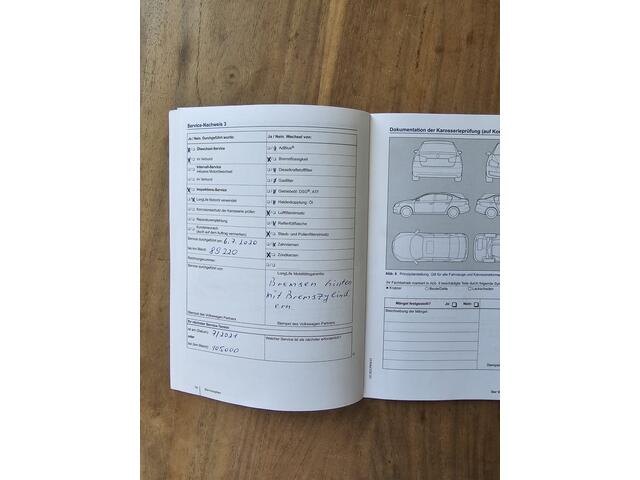 Service-Nachweis 3
Ja / Nein. Durchgeführt wurde:
Ölwechsel-Service
im Verbund
Intervall-Service
inklusive Motorölwechsel
im Verbund
Inspektions-Service
LongLife Motoröl verwendet
Korrosionsschutz der Karosserie prüfen
Reparaturempfehlung
Kundenwunsch
(Auch auf dem Auftrag vermerken)
Service durchgeführt am: 6.7.2020
bei km-Stand: 89220
Rechnungsnummer:
Service durchgeführt von:
Stempel des Volkswagen Partners
Ihr nächster Service-Termin:
ist am (Datum): 7/2021
oder
bei (km-Stand): 105000
Ja / Nein. Wechsel von:
AdBlue®
Bremsflüssigkeit
Dieselkraftstofffilter
Gasfilter
Getriebeöl: DSG®, ATF
Haldexkupplung: Öl
Luftfiltereinsatz
Reifenfüllflasche
Staub- und Pollenfiltereinsatz
Zahnriemen
Zündkerzen
LongLife Mobilitätsgarantie:
Bremsen hinten
mit Bremszylind
ern
Stempel des Volkswagen Partners
Welcher Service ist als nächster erforderlich?
Serviceplan
Dokumentation der Karosserieprüfung (auf Kor
Abb. 5 Prinzipdarstellung: Gilt für alle Fahrzeuge und Karosserieformen
Ihr Fachbetrieb markiert in Abb. 5 beschädigte Teile durch folgende Zei
Kratzer
Beule/Delle
Lackschaden
Mängel festgestellt? Ja Nein
Beschreibung der Mängel:
Stempel